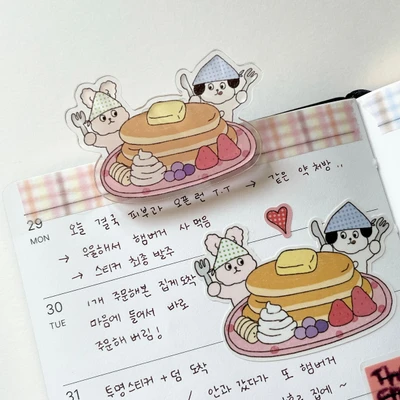 29
MON
오늘 결국 피부과 오픈런 T.T → 같은 약 처방 ;;
→ 우울해서 햄버거 사 먹음
→ 스티커 최종 발주
30
TUE
1개 주문해본 집게 도착
마음에 들어서 바로
주문해 버림!
31
투명스티커 + 덤 도착
안과 갔다가 또 햄버거
집에 ~